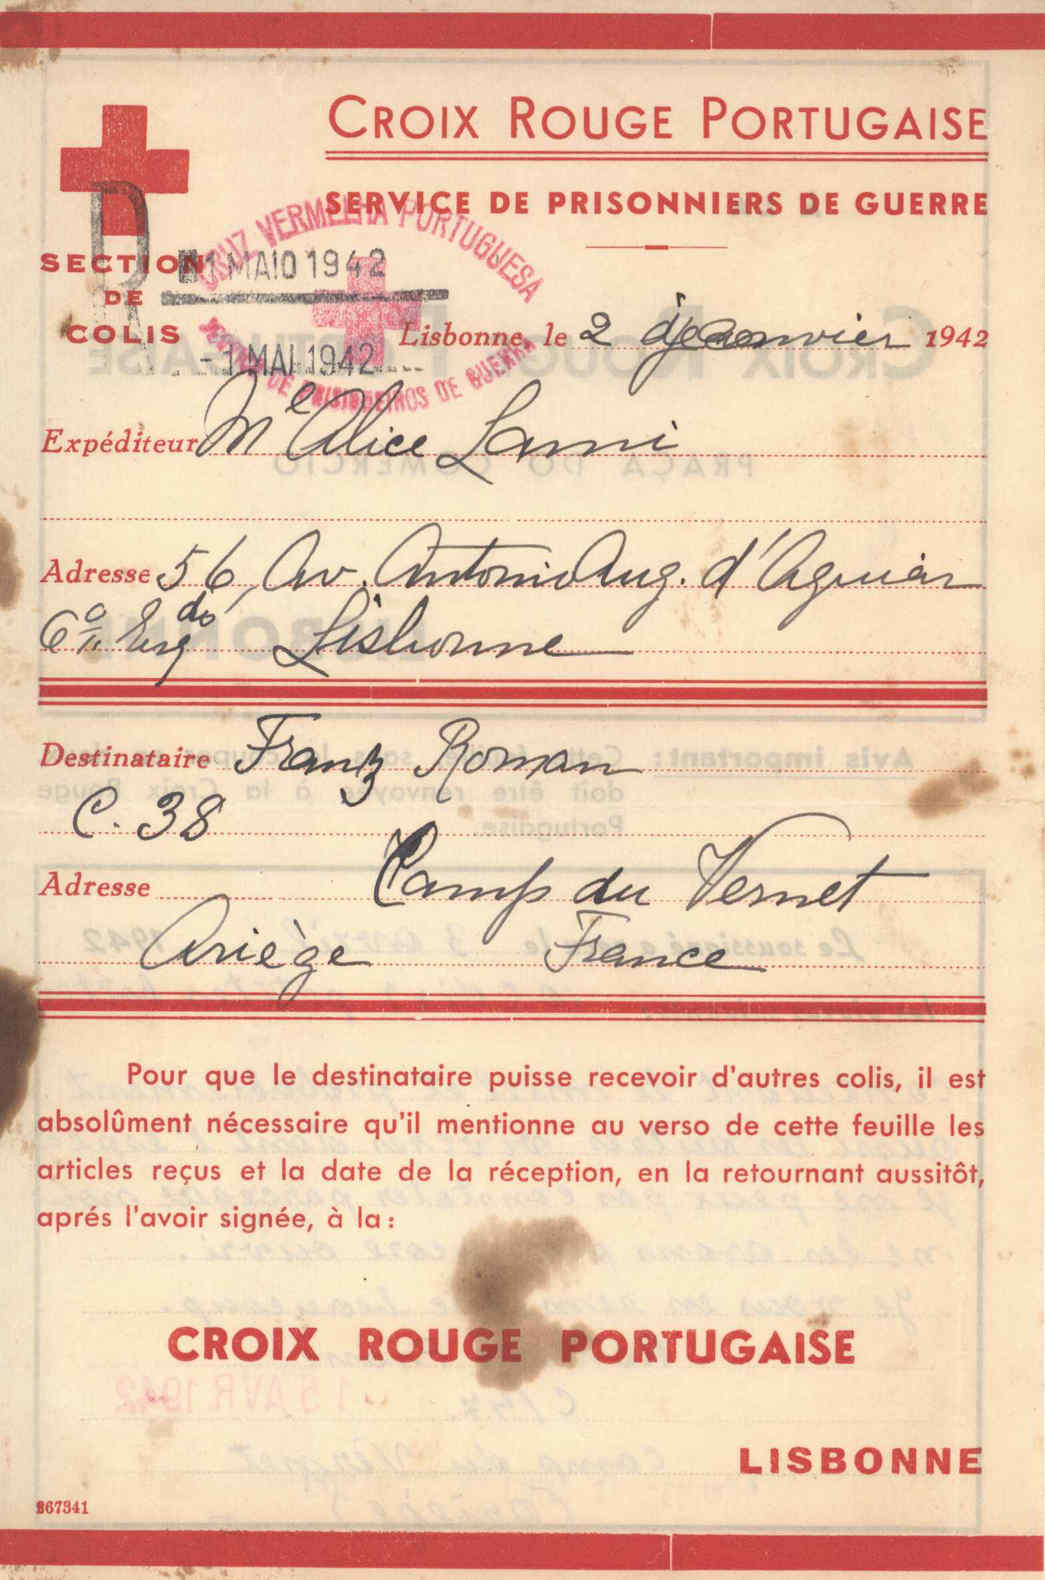 CROIX ROUGE PORTUGAISE
SERVICE DE PRISONNIERS DE GUERRE
SECTION
DE
COLIS
R
CRUZ VERMELHA PORTUGUESA
DE PRISIONEIROS DE GUERRA
1 MAIO 1942
-1 MAI 1942
Lisbonne, le 2 janvier 1942
Expéditeur Me Alice Lami
Adresse 56, Av. Antonio Aug. d'Aguiar
6º Esqdo Lisbonne
Destinataire Franz Roman
C. 38
Adresse Camp du Vernet
Ariège France
Pour que le destinataire puisse recevoir d'autres colis, il est
absolûment nécessaire qu'il mentionne au verso de cette feuille les
articles reçus et la date de la réception, en la retournant aussitôt,
aprés l'avoir signée, à la:
CROIX ROUGE PORTUGAISE
LISBONNE
867341